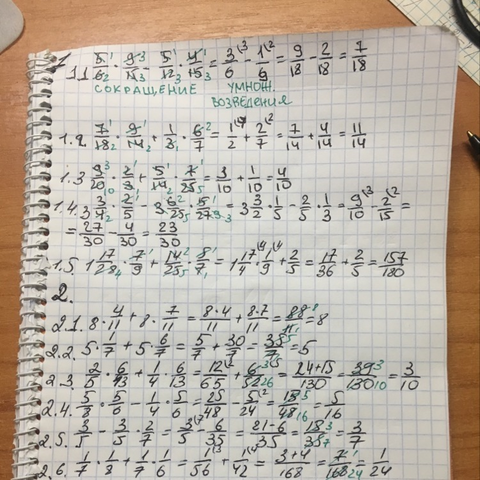 1
1.1 5/6 · 9/15 - 5/12 · 4/15 = 3/6 - 1/9 = 9/18 - 2/18 = 7/18
СОКРАЩЕНИЕ УМНОЖ.
ВОЗВЕДЕНИЯ
1.2. 7/18 · 9/14 + 1/3 · 6/7 = 1/2 + 2/7 = 7/14 + 4/14 = 11/14
1.3 9/20 · 2/3 + 5/14 · 7/25 = 3/10 + 1/10 = 4/10
= 27/30 - 4/30 = 23/30
1.5. 1 17/28 · 7/9 + 14/25 · 8/7 = 1 17/4 · 1/9 + 2/5 = 17/36 + 2/5 = 157/180
2.
2.1. 8 · 4/11 + 8 · 7/11 = 8·4/11 + 8·7/11 = 88/11 = 8
2.2. 5 · 1/7 + 5 · 6/7 = 5/7 + 30/7 = 35/7 = 5
2.3. 2/5 · 6/13 + 1/4 · 6/13 = 12/65 + 6/52 = 24+15/130 = 39/130 = 3/10
2.4. 5/8 · 5/6 - 1/4 · 5/6 = 25/48 - 5/24 = 15/48 = 5/16
2.5. 3/5 - 3/5 · 2/7 = 3/5 - 6/35 = 21-6/35 = 3/7
2.6. 1/7 · 1/8 + 1/7 · 1/6 = 1/56 + 1/42 = 3+4/168 = 7/168 = 1/24